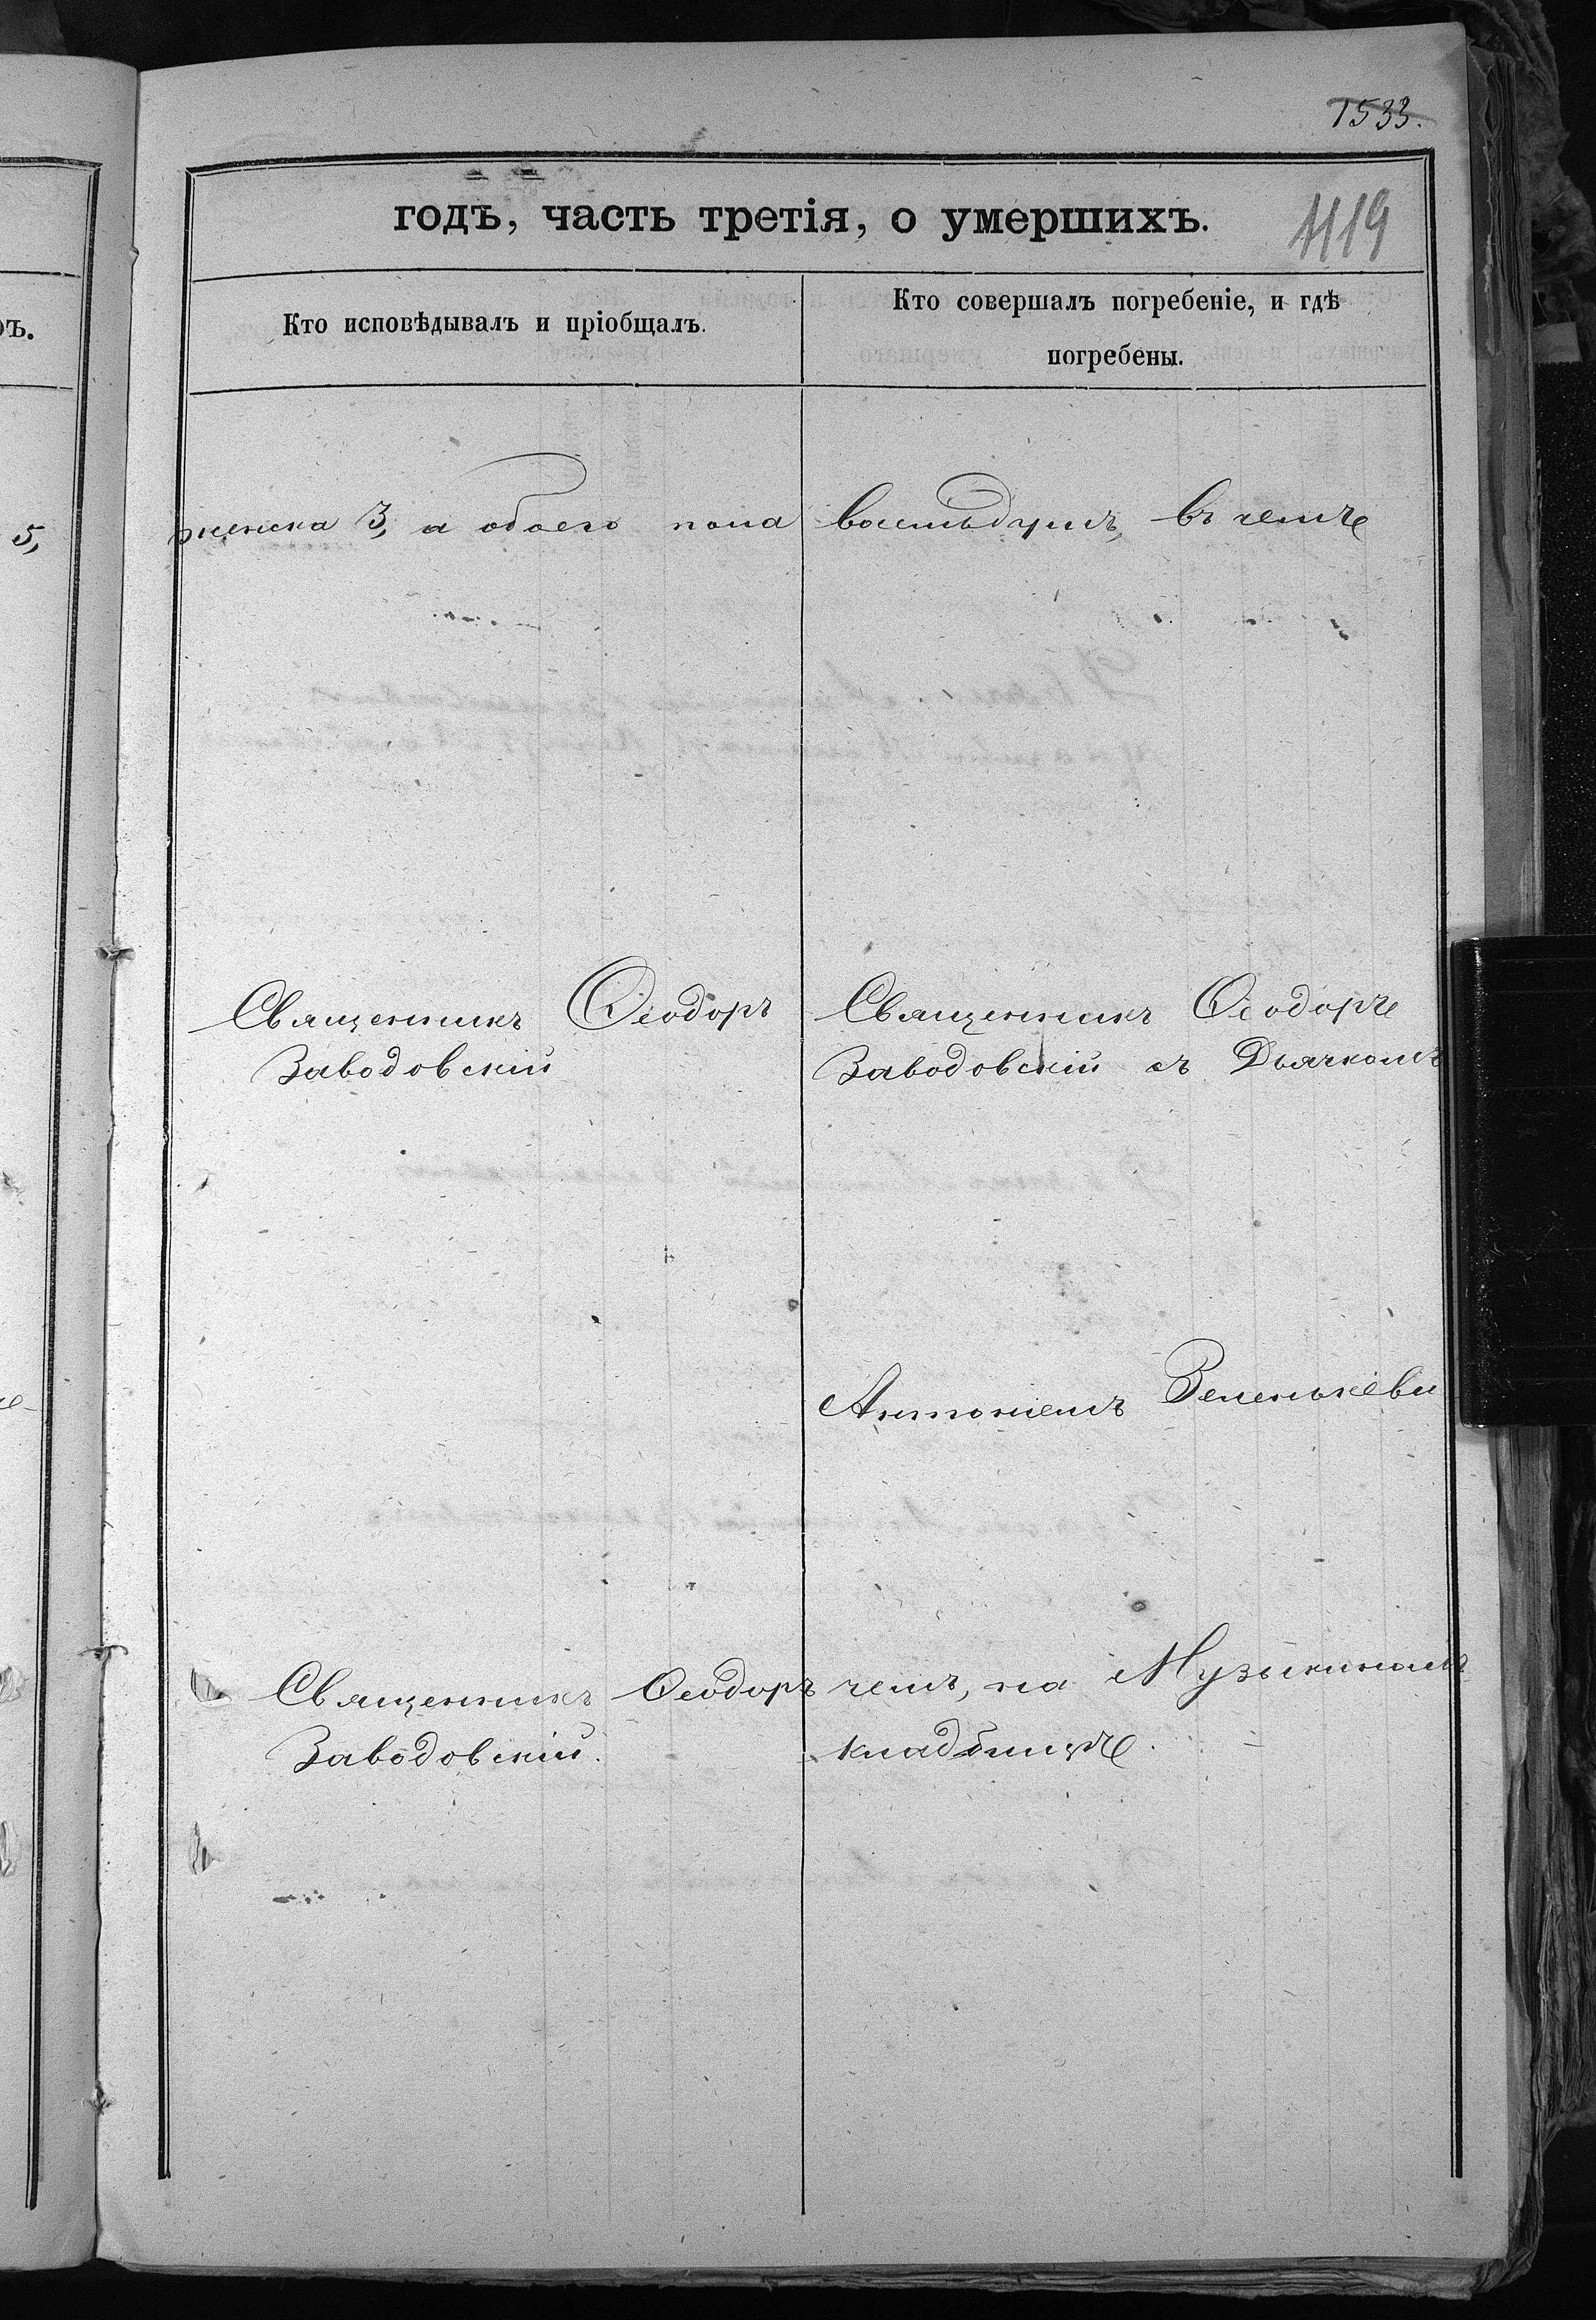 1533.
годъ, часть третія, о умершихъ.
1119
Кто исповѣдывалъ и пріобщалъ.
Кто совершалъ погребеніе, и гдѣ
погребены.
ъ.
5,
женска 3, а обоего пола восьмъ душъ, въ чемъ
Священникъ Ѳеодоръ
Заводовскій
Священникъ Ѳеодоръ
Заводовскій съ Дьячкомъ
Антоніемъ Зеленькеви
Священникъ Ѳеодоръ
Заводовскій.
чемъ, на Музыкиномъ
кладбищѣ.